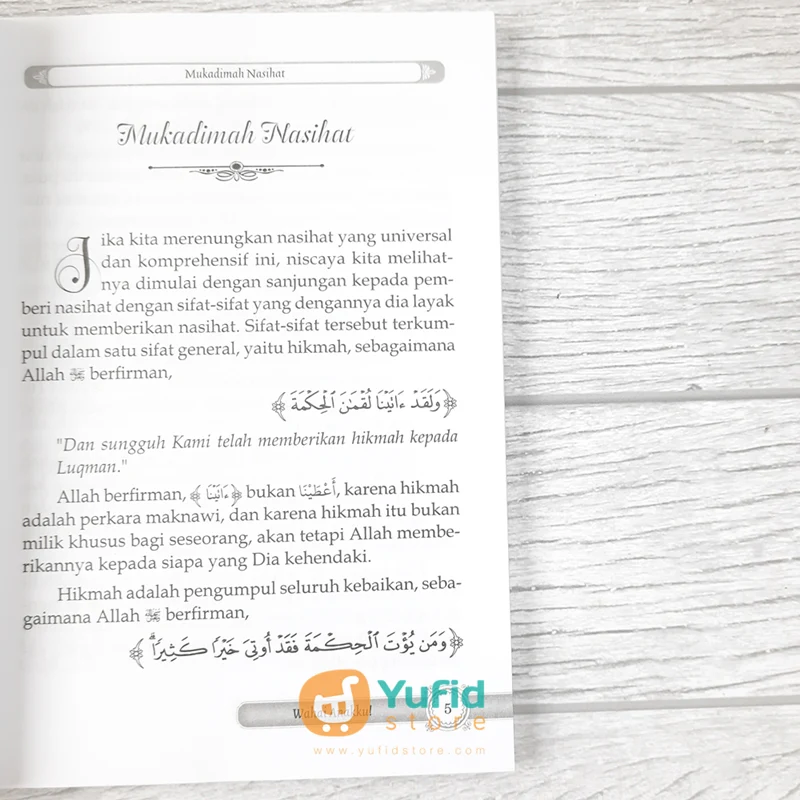 Mukadimah Nasihat
Mukadimah Nasihat
Jika kita merenungkan nasihat yang universal
dan komprehensif ini, niscaya kita melihat-
nya dimulai dengan sanjungan kepada pem-
beri nasihat dengan sifat-sifat yang dengannya dia layak
untuk memberikan nasihat. Sifat-sifat tersebut terkum-
pul dalam satu sifat general, yaitu hikmah, sebagaimana
Allah ﷻ berfirman,
﴿وَلَقَدْ ءَاتَيْنَا لُقْمَٰنَ ٱلْحِكْمَةَ﴾
"Dan sungguh Kami telah memberikan hikmah kepada
Luqman."
Allah berfirman, ﴿ءَاتَيْنَا﴾ bukan أَعْطَيْنَا, karena hikmah
adalah perkara maknawi, dan karena hikmah itu bukan
milik khusus bagi seseorang, akan tetapi Allah membe-
rikannya kepada siapa yang Dia kehendaki.
Hikmah adalah pengumpul seluruh kebaikan, seba-
gaimana Allah ﷻ berfirman,
﴿وَمَن يُؤْتَ ٱلْحِكْمَةَ فَقَدْ أُوتِىَ خَيْرًا كَثِيرًا ۗ﴾
Wahai Anakku!
5
Yufid
store
www.yufidstore.com